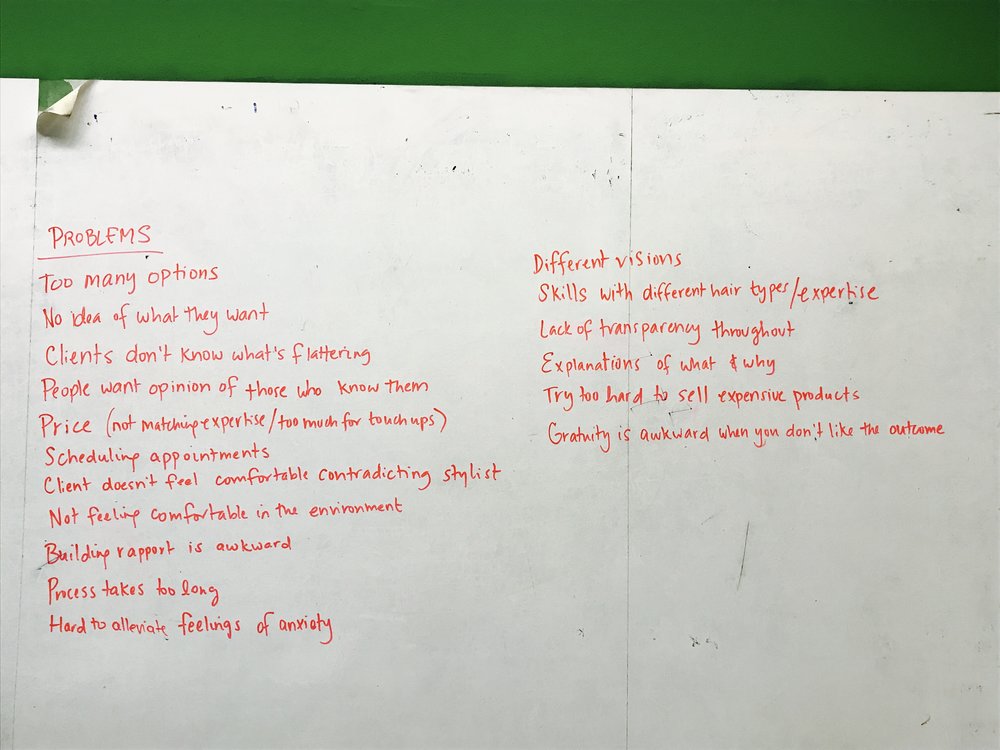 PROBLEMS
Too many options
No idea of what they want
Clients don't know what's flattering
People want opinion of those who know them
Price (not matching expertise/too much for touch ups)
Scheduling appointments
Client doesn't feel comfortable contradicting stylist
Not feeling comfortable in the environment
Building rapport is awkward
Process takes too long
Hard to alleviate feelings of anxiety
Different visions
Skills with different hair types/expertise
Lack of transparency throughout
Explanations of what & why
Try too hard to sell expensive products
Gratuity is awkward when you don't like the outcome